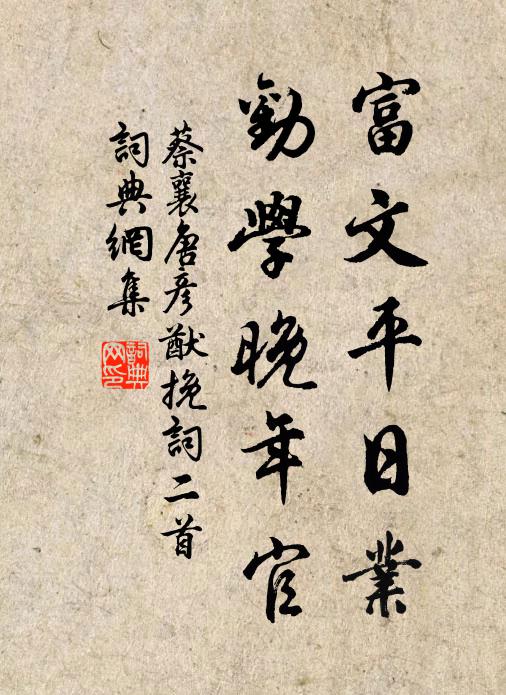 富文平日業
勸學晚年官
蔡襄唐彥猷挽詞二首
詞典網集
詞典
网印